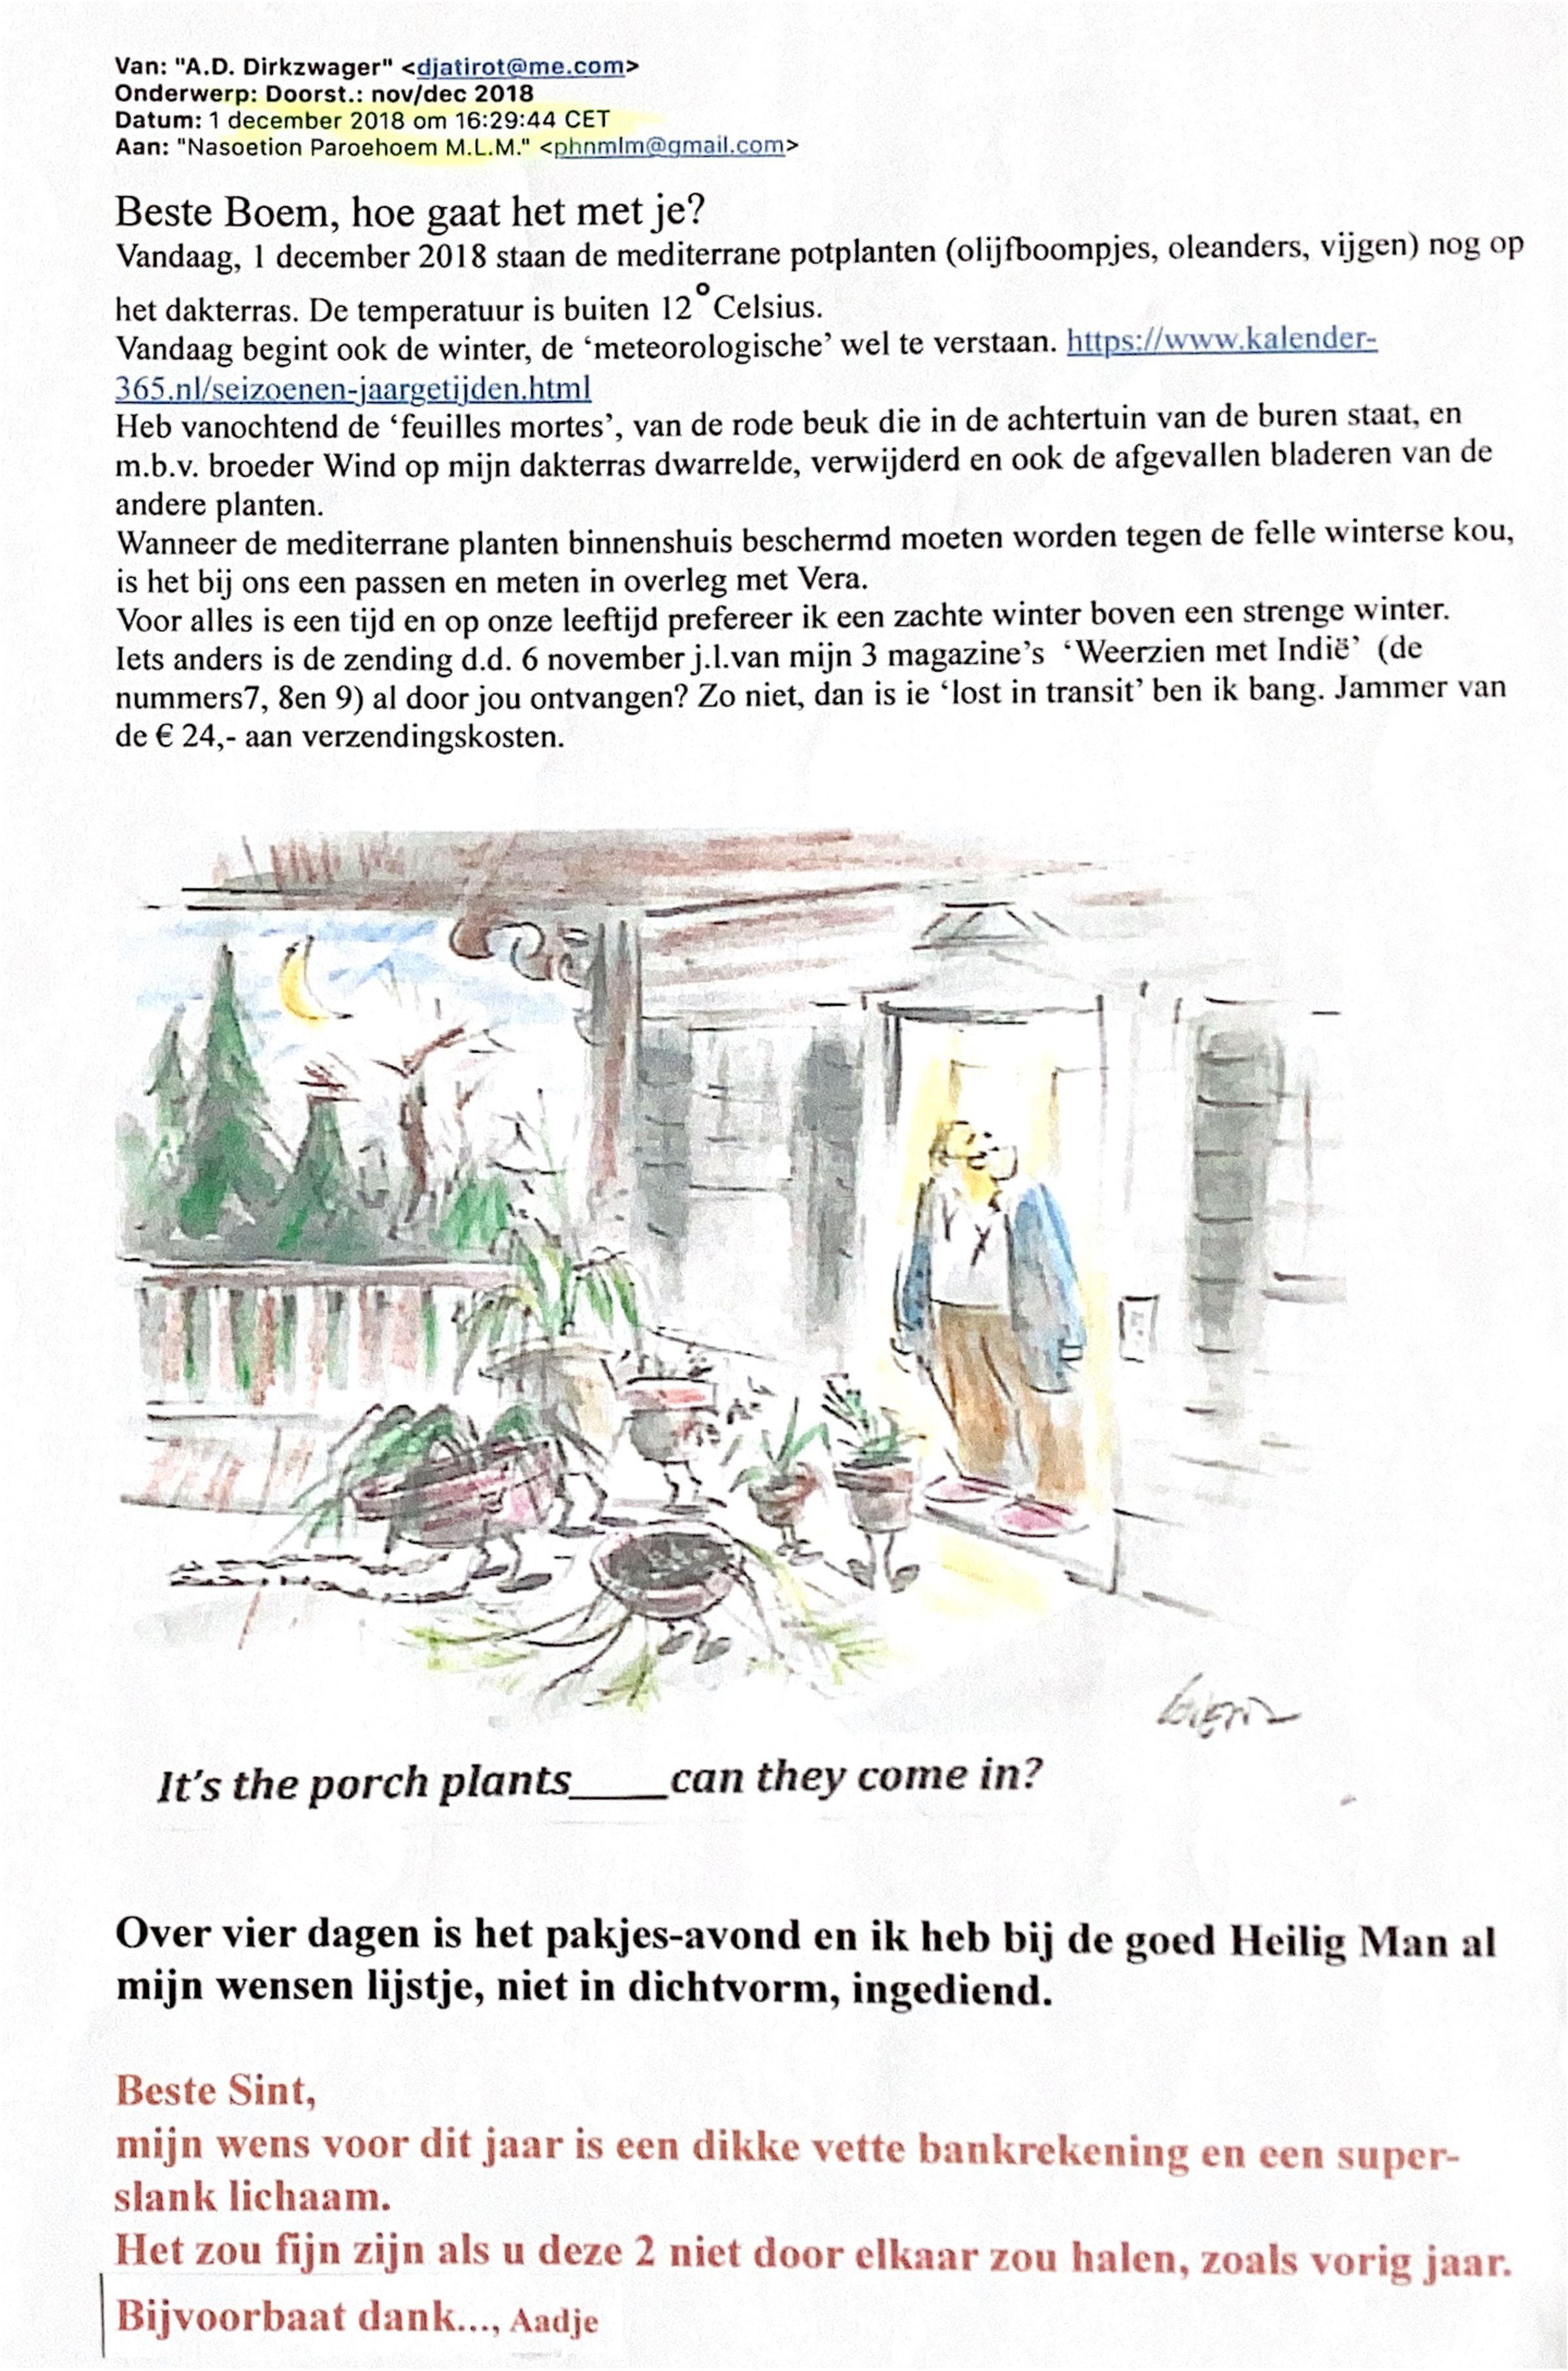 Van: "A.D. Dirkzwager" <djatirot@me.com>
Onderwerp: Doorst.: nov/dec 2018
Datum: 1 december 2018 om 16:29:44 CET
Aan: "Nasoetion Paroehoem M.L.M." <phnmlm@gmail.com>
Beste Boem, hoe gaat het met je?
Vandaag, 1 december 2018 staan de mediterrane potplanten (olijfboompjes, oleanders, vijgen) nog op
het dakterras. De temperatuur is buiten 12°Celsius.
Vandaag begint ook de winter, de ‘meteorologische’ wel te verstaan. https://www.kalender-
365.nl/seizoenen-jaargetijden.html
Heb vanochtend de ‘feuilles mortes’, van de rode beuk die in de achtertuin van de buren staat, en
m.b.v. broeder Wind op mijn dakterras dwarrelde, verwijderd en ook de afgevallen bladeren van de
andere planten.
Wanneer de mediterrane planten binnenshuis beschermd moeten worden tegen de felle winterse kou,
is het bij ons een passen en meten in overleg met Vera.
Voor alles is een tijd en op onze leeftijd prefereer ik een zachte winter boven een strenge winter.
Iets anders is de zending d.d. 6 november j.l.van mijn 3 magazine’s ‘Weerzien met Indië’ (de
nummers7, 8en 9) al door jou ontvangen? Zo niet, dan is ie ‘lost in transit’ ben ik bang. Jammer van
de € 24,- aan verzendingskosten.
It’s the porch plants____can they come in?
Over vier dagen is het pakjes-avond en ik heb bij de goed Heilig Man al
mijn wensen lijstje, niet in dichtvorm, ingediend.
Beste Sint,
mijn wens voor dit jaar is een dikke vette bankrekening en een super-
slank lichaam.
Het zou fijn zijn als u deze 2 niet door elkaar zou halen, zoals vorig jaar.
Bijvoorbaat dank..., Aadje